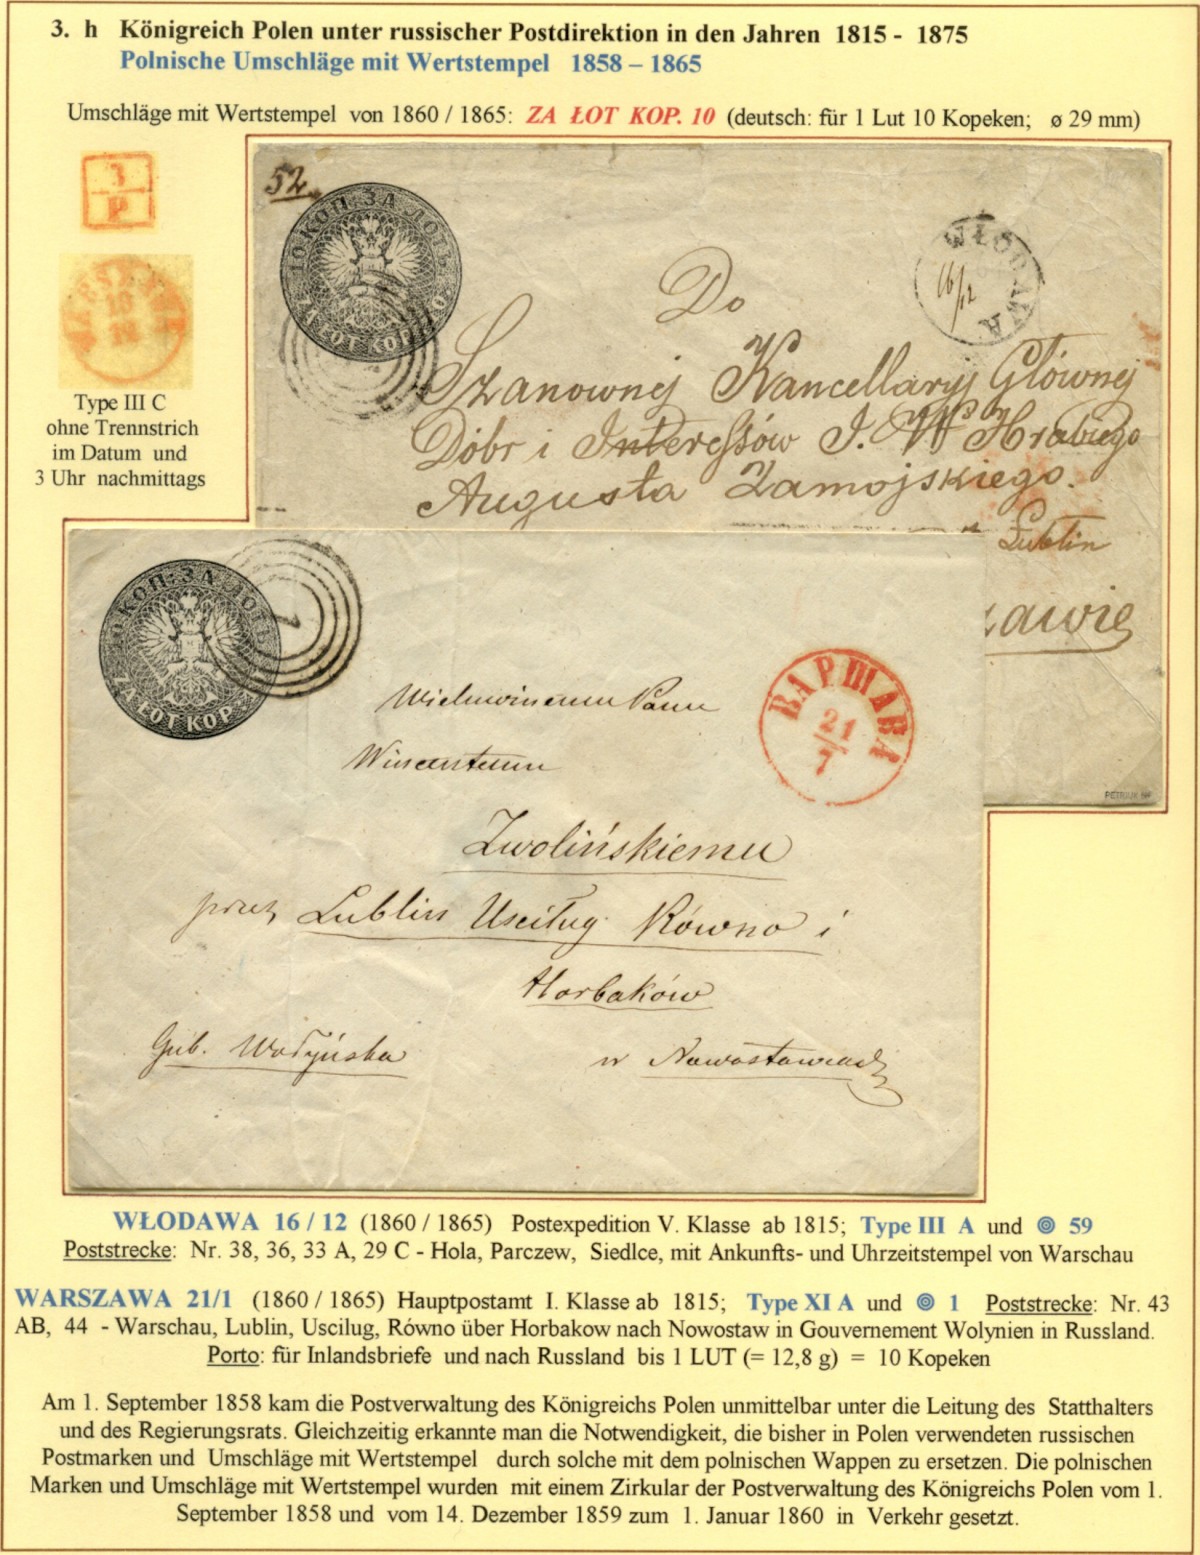 3. h Königreich Polen unter russischer Postdirektion in den Jahren 1815 - 1875
Polnische Umschläge mit Wertstempel 1858 – 1865
Umschläge mit Wertstempel von 1860 / 1865: ZA ŁOT KOP. 10 (deutsch: für 1 Lut 10 Kopeken; ø 29 mm)
3
P
10
Type III C
ohne Trennstrich
im Datum und
3 Uhr nachmittags
52
10 КОП. ЗА ЛОТЪ
ZA ŁOT KOP. 10
WŁODAWA
16/12
Do
Szanownej Kancellaryi Głównej
Dóbr i Interessów J. W. Hrabiego
Augusta Zamojskiego.
Lublin
zawie
PETRIUK
10 КОП. ЗА ЛОТЪ
ZA ŁOT KOP.
1
ВАРШАВА
21
7
Wielmożnemu Panu
Wincentemu
Zwolińskiemu
przez Lublin Uscilug Równo i
Horbaków
Gub. Wołyńska
w Nowostawiach
WŁODAWA 16 / 12 (1860 / 1865) Postexpedition V. Klasse ab 1815; Type III A und 59
Poststrecke: Nr. 38, 36, 33 A, 29 C - Hola, Parczew, Siedlce, mit Ankunfts- und Uhrzeitstempel von Warschau
WARSZAWA 21/1 (1860 / 1865) Hauptpostamt I. Klasse ab 1815; Type XI A und 1 Poststrecke: Nr. 43
AB, 44 - Warschau, Lublin, Uscilug, Równo über Horbakow nach Nowostaw in Gouvernement Wolynien in Russland.
Porto: für Inlandsbriefe und nach Russland bis 1 LUT (= 12,8 g) = 10 Kopeken
Am 1. September 1858 kam die Postverwaltung des Königreichs Polen unmittelbar unter die Leitung des Statthalters
und des Regierungsrats. Gleichzeitig erkannte man die Notwendigkeit, die bisher in Polen verwendeten russischen
Postmarken und Umschläge mit Wertstempel durch solche mit dem polnischen Wappen zu ersetzen. Die polnischen
Marken und Umschläge mit Wertstempel wurden mit einem Zirkular der Postverwaltung des Königreichs Polen vom 1.
September 1858 und vom 14. Dezember 1859 zum 1. Januar 1860 in Verkehr gesetzt.